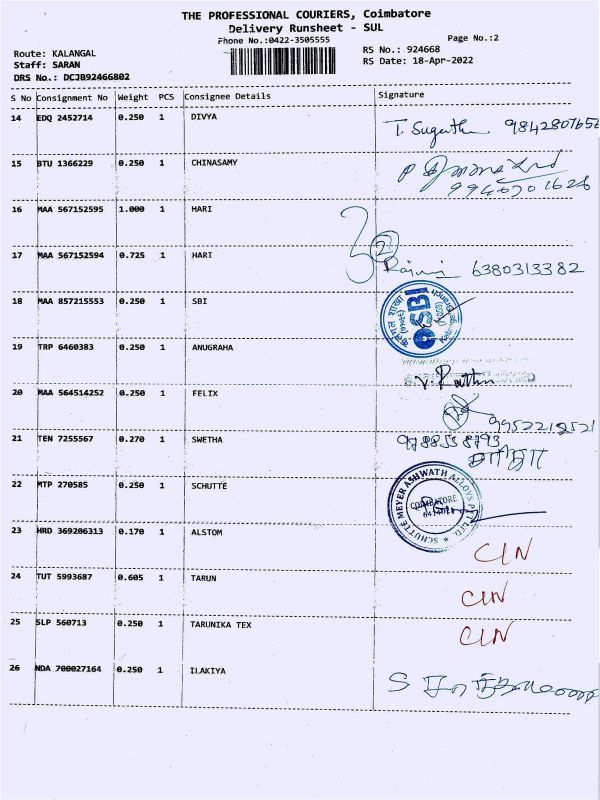 THE PROFESSIONAL COURIERS, Coimbatore
Delivery Runsheet - SUL
Phone No.:0422-3505555
Page No.:2
Route: KALANGAL
RS No.: 924668
Staff: SARAN
RS Date: 18-Apr-2022
DRS No.: DCJB92466802
S No Consignment No Weight PCS Consignee Details Signature
14 EDQ 2452714 0.250 1 DIVYA
15 BTU 1366229 0.250 1 CHINASAMY
16 MAA 567152595 1.000 1 HARI
17 MAA 567152594 0.725 1 HARI 6380313382
18 MAA 857215553 0.250 1 SBI SBI
19 TRP 6460383 0.250 1 ANUGRAHA
20 MAA 564514252 0.250 1 FELIX 9952219521
21 TEN 7255567 0.270 1 SWETHA 9788558793
22 MTP 270585 0.250 1 SCHUTTE SCHUTTE MEYER ASHWATH ALLOYS PVT LTD. COIMBATORE
23 HRD 369206313 0.170 1 ALSTOM CIN
24 TUT 5993687 0.605 1 TARUN CIN
25 SLP 560713 0.250 1 TARUNIKA TEX CIN
26 NDA 700027164 0.250 1 ILAKIYA S